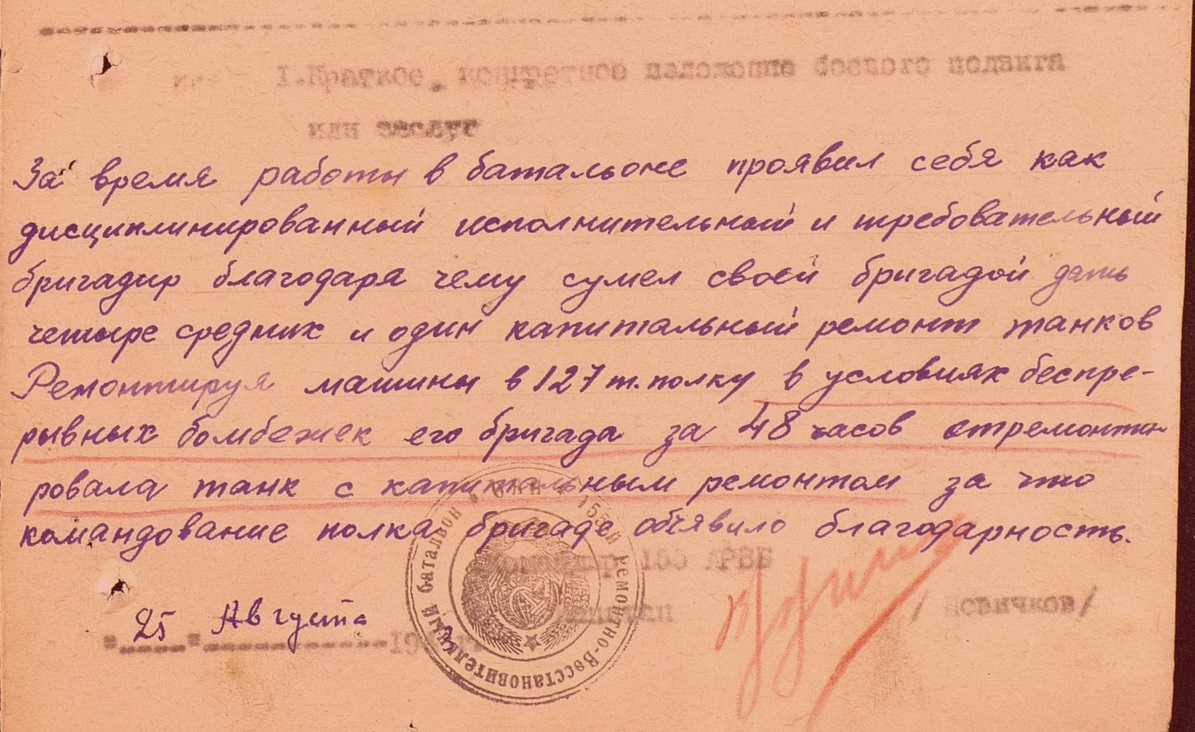 I.Краткое, конкретное изложение боевого подвига
или заслуг
За время работы в батальоне проявил себя как
дисциплинированный исполнительный и требовательный
бригадир благодаря чему сумел своей бригадой дать
четыре средних и один капитальный ремонт танков
Ремонтируя машины в 127 т. полку в условиях беспре-
рывных бомбежек его бригада за 48 часов отремонти-
ровала танк с капитальным ремонтом за что
командование полка бригаде объявило благодарность.
Командир 155 АРВБ
капитан /Новичков/
"25" Августа 19
155й Ремонтно-Восстановительный батальон